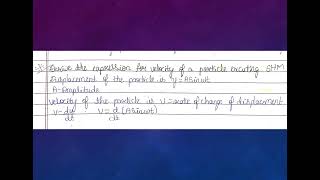 Derive the expression for velocity of a particle executing SHM
Displacement of the particle is y = A sin ωt
A - Amplitude
velocity of the particle is v = rate of change of displacement
v = dy/dt v = d/dt (A sin ωt)